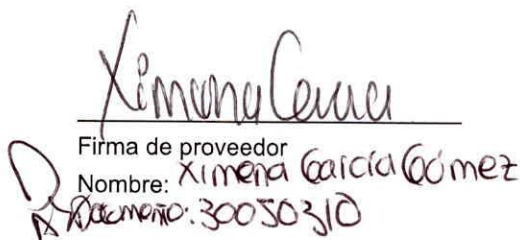 Ximena Garcia
Firma de proveedor
Nombre: Ximena García Gómez
Documento: 30050310